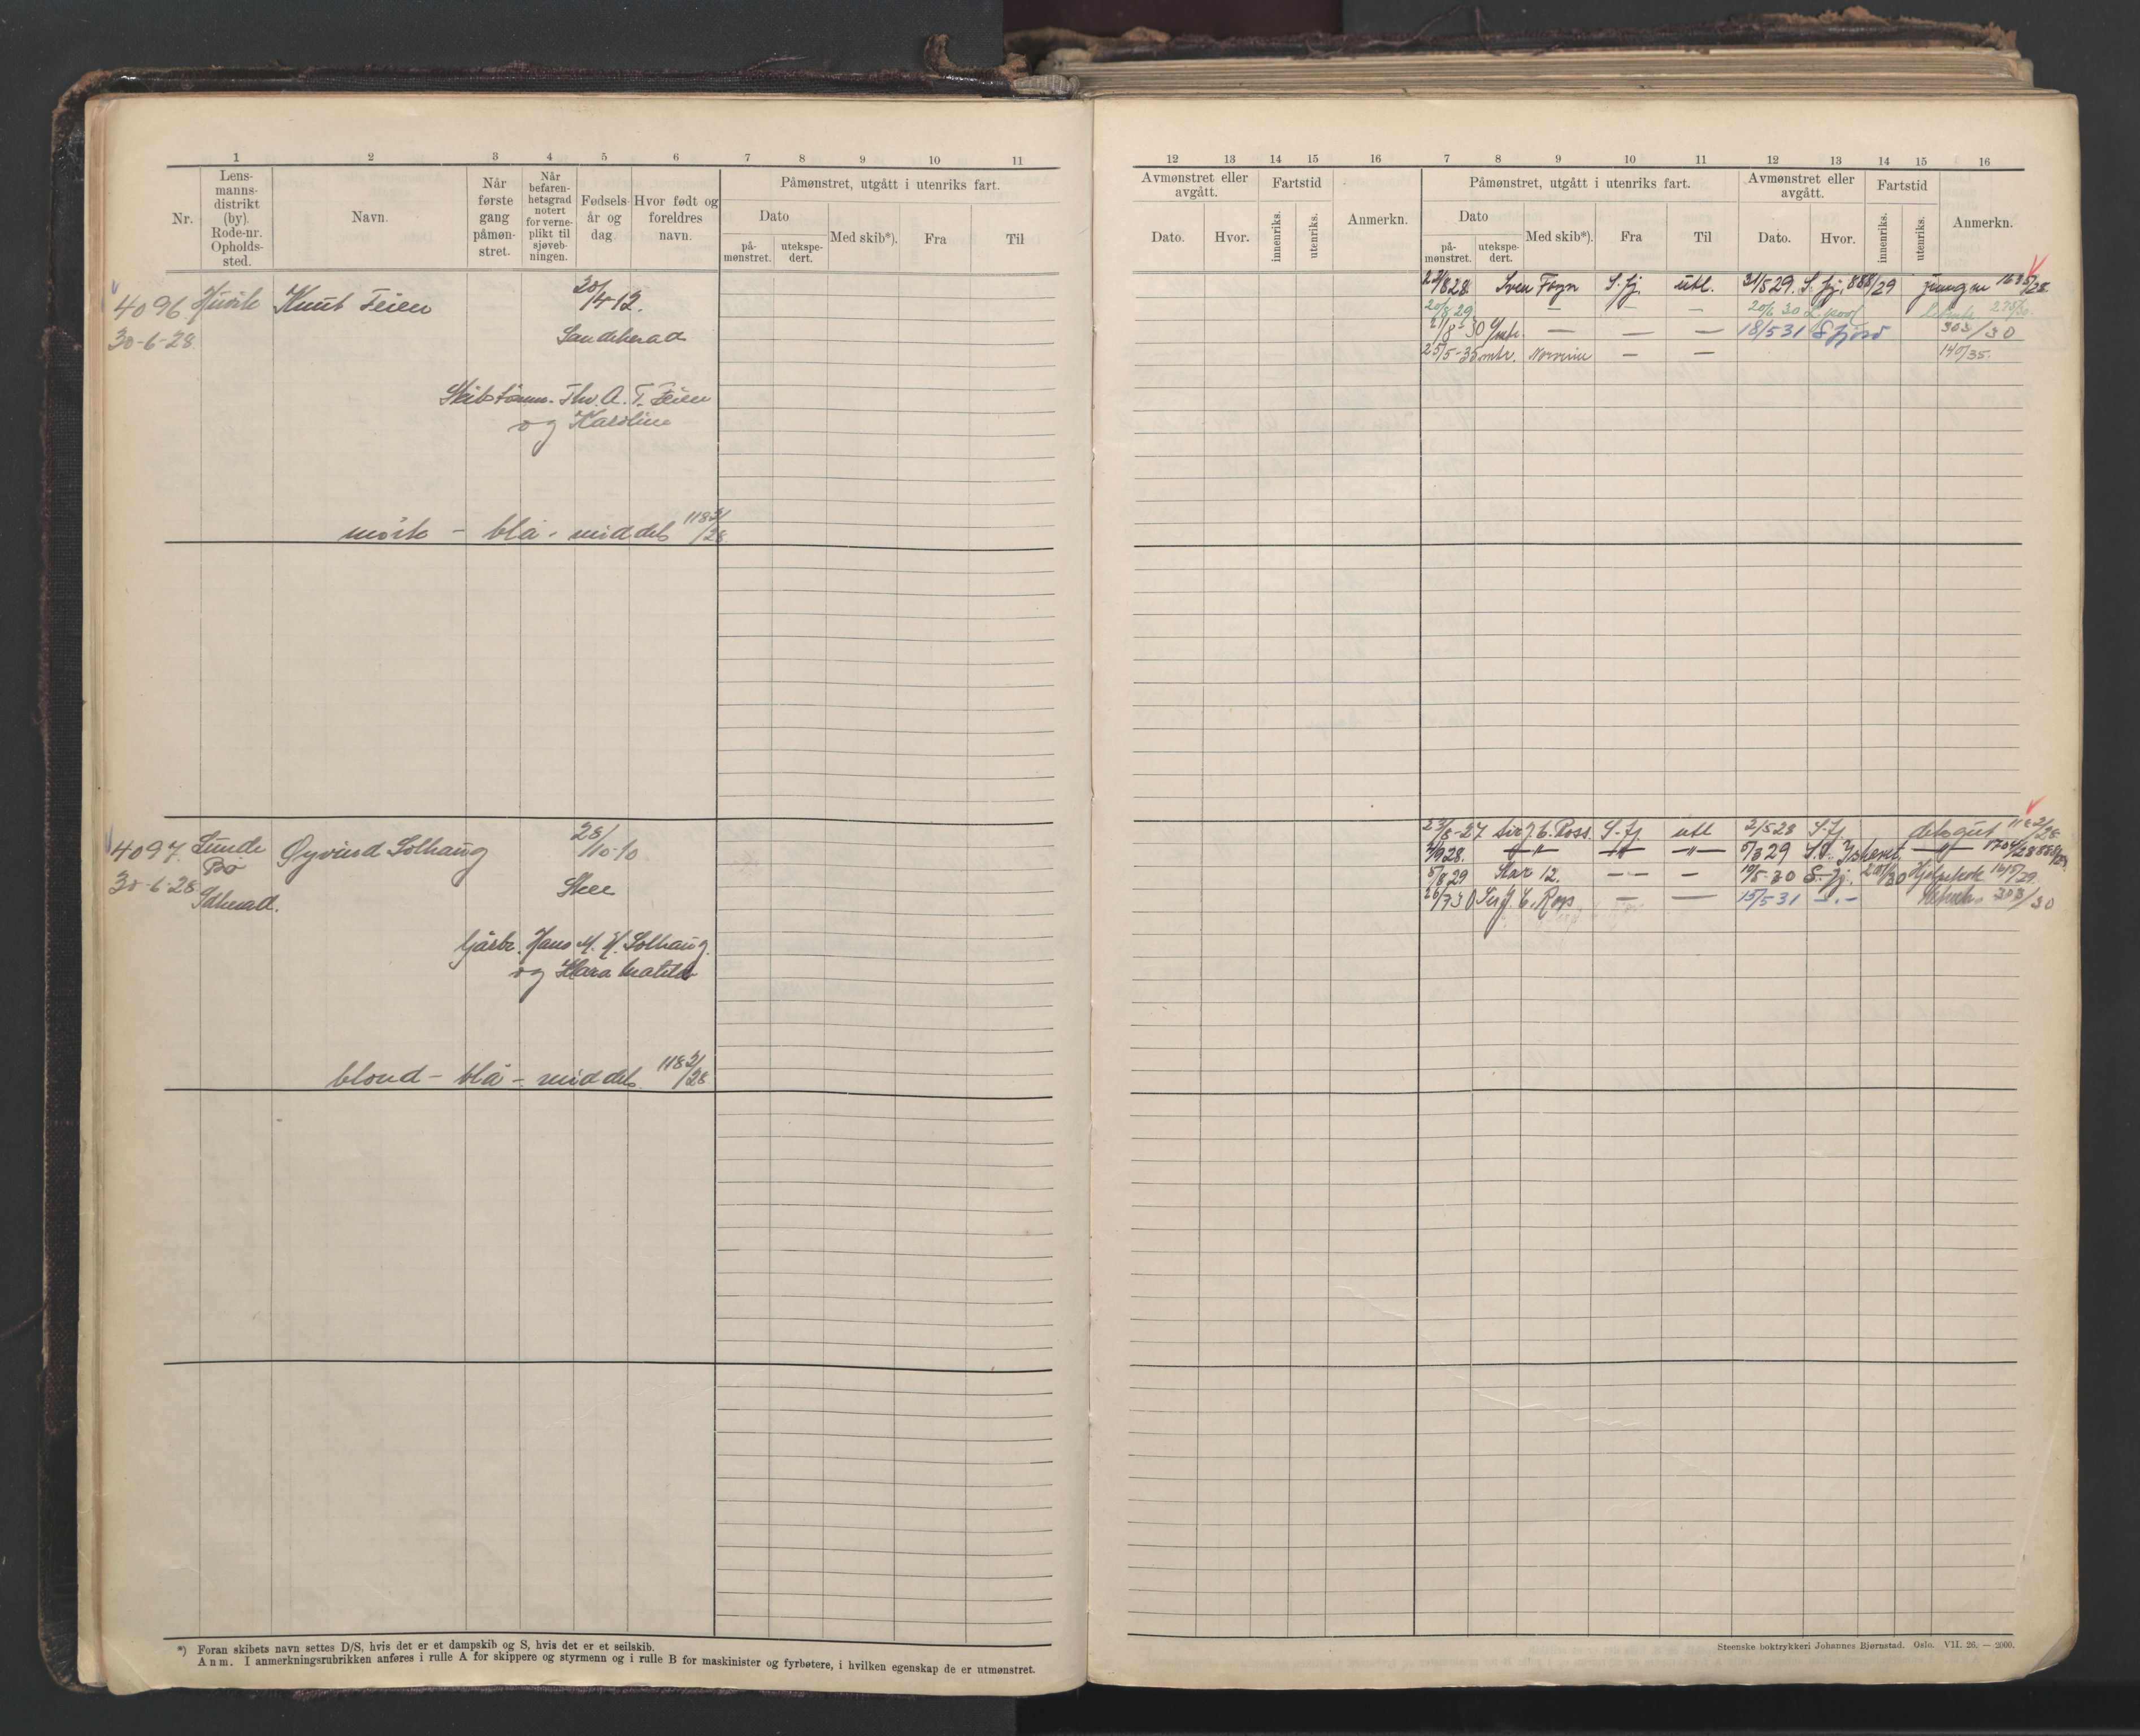 1 2 3 4 5 6 7 8 9 10 11
Nr.
Lens-
manns-
distrikt
(by).
Rode-nr.
Opholds-
sted.
Navn.
Når
første
gang
påmøn-
stret.
Når
befaren-
hetsgrad
notert
for verne-
plikt til
sjøveb-
ningen.
Fødsels-
år og
dag.
Hvor født og
foreldres
navn.
Påmønstret, utgått i utenriks fart.
Dato
på-
mønstret.
utekspe-
dert.
Med skib*).
Fra
Til
4096 Huvik Knut Feien 20/4-12.
30-6-28 Sandeherad
Skibstømm. Thv. A. T. Feien
og Karoline
mørk - blå - middels 1182/28
4097 Sunde Øyvind Solhaug 28/10-10
Bø
30-6-28 Skee
Idherad.
Gårbr. Hans M. H. Solhaug
og Klara Matilde
blond - blå - middels 1182/28
*) Foran skibets navn settes D/S, hvis det er et dampskib og S, hvis det er et seilskib.
Anm. I anmerkningsrubrikken anføres i rulle A for skippere og styrmenn og i rulle B for maskinister og fyrbøtere, i hvilken egenskap de er utmønstret.
12 13 14 15 16 7 8 9 10 11 12 13 14 15 16
Avmønstret eller
avgått.
Dato.
Hvor.
Fartstid
innenriks.
utenriks.
Anmerkn.
Påmønstret, utgått i utenriks fart.
Dato
på-
mønstret.
utekspe-
dert.
Med skib*).
Fra
Til
Avmønstret eller
avgått.
Dato.
Hvor.
Fartstid
innenriks.
utenriks.
Anmerkn.
Sven Foyn S. fj. utl. 31/5 29. S. fj. 888/29 jungm
20/8 29 — — — 20/6 30 L.pool
21/8-30 — — — 18/5 31 Sfjord 303/30
25/5-35 mtr. — — 140/35.
23/8-27 Sir J. C. Ross. S. fj utl 2/5 28 S. fj. 1182/28
—"— —"— —"— 5/3 29 —"— 1704/28
5/8 29 Star 12. — - — 19/5-30 S. fj.
26/7 30 Sir J. C. Ross — — 15/5 31 — . — 303/30
Steenske boktrykkeri Johannes Bjørnstad. Oslo. VII. 26. — 2000.